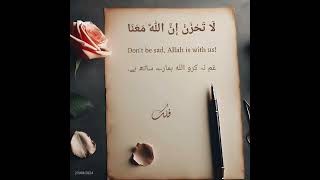 لَا تَحْزَنْ إِنَّ اللّٰهَ مَعَنَا
Don't be sad, Allah is with us!
غم نہ کرو اللہ ہمارے ساتھ ہے۔
فلک